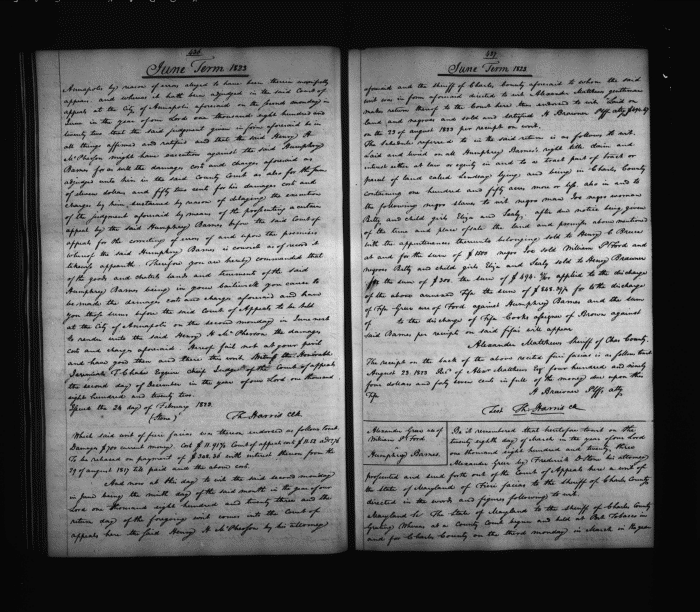 436
June Term 1823
Annapolis by reason of error alleged to have been therein manifestly
appear. and whereas it hath been adjudged in the said Court of
appeal at the City of Annapolis aforesaid on the second monday in
June in the year of our Lord one thousand eight hundred and
twenty two that the said judgment given in form aforesaid be in
all things affirmed and ratified and that the said Henry H
McPherson might have execution against the said Humphrey
Barnes for as well the damages cost and charges aforesaid as
adjudged unto him in the said County Court as also for the sum
of eleven dollars and fifty two cents for his damages cost and
charges by him sustained by reason of delaying the execution
of the judgment aforesaid by means of the prosecuting a certain
appeal by the said Humphrey Barnes before the said Court of
appeals for the correcting of error of and upon the premises
whereof the said Humphrey Barnes is convict as of record it
likewise appeareth. Therefore you are hereby commanded that
of the goods and chattels lands and tenements of the said
Humphrey Barnes being in your bailiwick you cause to
be made the damages cost and charges aforesaid and have
you those sums before the said Court of Appeals to be held
at the City of Annapolis on the second monday in June next
to render unto the said Henry H McPherson the damages
cost and charges aforesaid. Hereof fail not at your peril
and have you then and there this writ. Witness the Honorable
Jeremiah T Chase Esquire chief Judge of the Court of appeals
the second day of December in the year of our Lord one thousand
eight hundred and twenty two.
Issued the 24 day of February 1823.
Th Harris Clk
Which said writ of fieri facias was thereon endorsed as follows towit.
Damages $700 current money. Cost $11.91 County Court of appeal cost $11.52
To be released on payment of $308.36 with interest thereon from the
29 of august 1817 till paid and the above cost.
And now at this day to wit the said second monday
in June being the ninth day of the said month in the year of our
Lord one thousand eight hundred and twenty three and the
return day of the foregoing writ comes into the Court of
appeals here the said Henry H McPherson by his attorney
437
June Term 1823
aforesaid and the sheriff of Charles County aforesaid to whom the said
writ was in form aforesaid directed to wit Alexander Matthews gentleman
make return thereof to the Court here thus endorsed to wit. Laid on
land and negroes and sold and satisfied A Brawner Plffs atty
on the 23 of august 1823 per receipt on writ.
The schedule referred to in the said return is as follows to wit.
Seized and levied on all Humphrey Barnes's right title claim and
interest either at law or equity in and to a tract part of tract or
parcel of land called Lindsay lying and being in Charles County
containing one hundred and fifty acres more or less also in and to
the following negro slaves to wit negro man Joe negro woman
Betty and child girl Eliza and Sealy. after due notice being given
of the time and place of sale the land and premises above mentioned
with the appurtenances thereunto belonging sold to Henry C Bruce
at and for the sum of $1800 negro Joe sold William P Ford and
negroes Betty and child girl Eliza and Sealy sold to Henry Brawner
for the sum of $300. the sum of applied to the discharge
of the above annexed fifa the sum of to the discharge of
fifa Greer use of Ford against Humphrey Barnes and the sum
of to the discharge of fifa Cooke assignee of Brown against
said Barnes per receipt on said fifas will appear.
Alexander Matthews Sheriff of Chas County.
The receipt on the back of the above recited fieri facias is as follows towit
August 23. 1823 Recd of Alexr Matthews Esq four hundred and ninety
four dollars and forty seven cents in full of the money due upon this
fifa
A Brawner Plffs atty.
Test Th Harris Clk
Alexander Greer use of
William P Ford
Humphrey Barnes.
Be it remembered that heretofore towit on the
twenty eighth day of March in the year of our Lord
one thousand eight hundred and twenty three
Alexander Greer by Frederick Stone his attorney
prosecuted and sued forth out of the Court of Appeals here a writ of
the State of Maryland of Fieri facias to the Sheriff of Charles County
directed in the words and figures following to wit.
Maryland Sc The State of Maryland to the Sheriff of Charles County
Greeting Whereas at a County Court begun and held at Port Tobacco in
and for Charles County on the third monday in March in the year